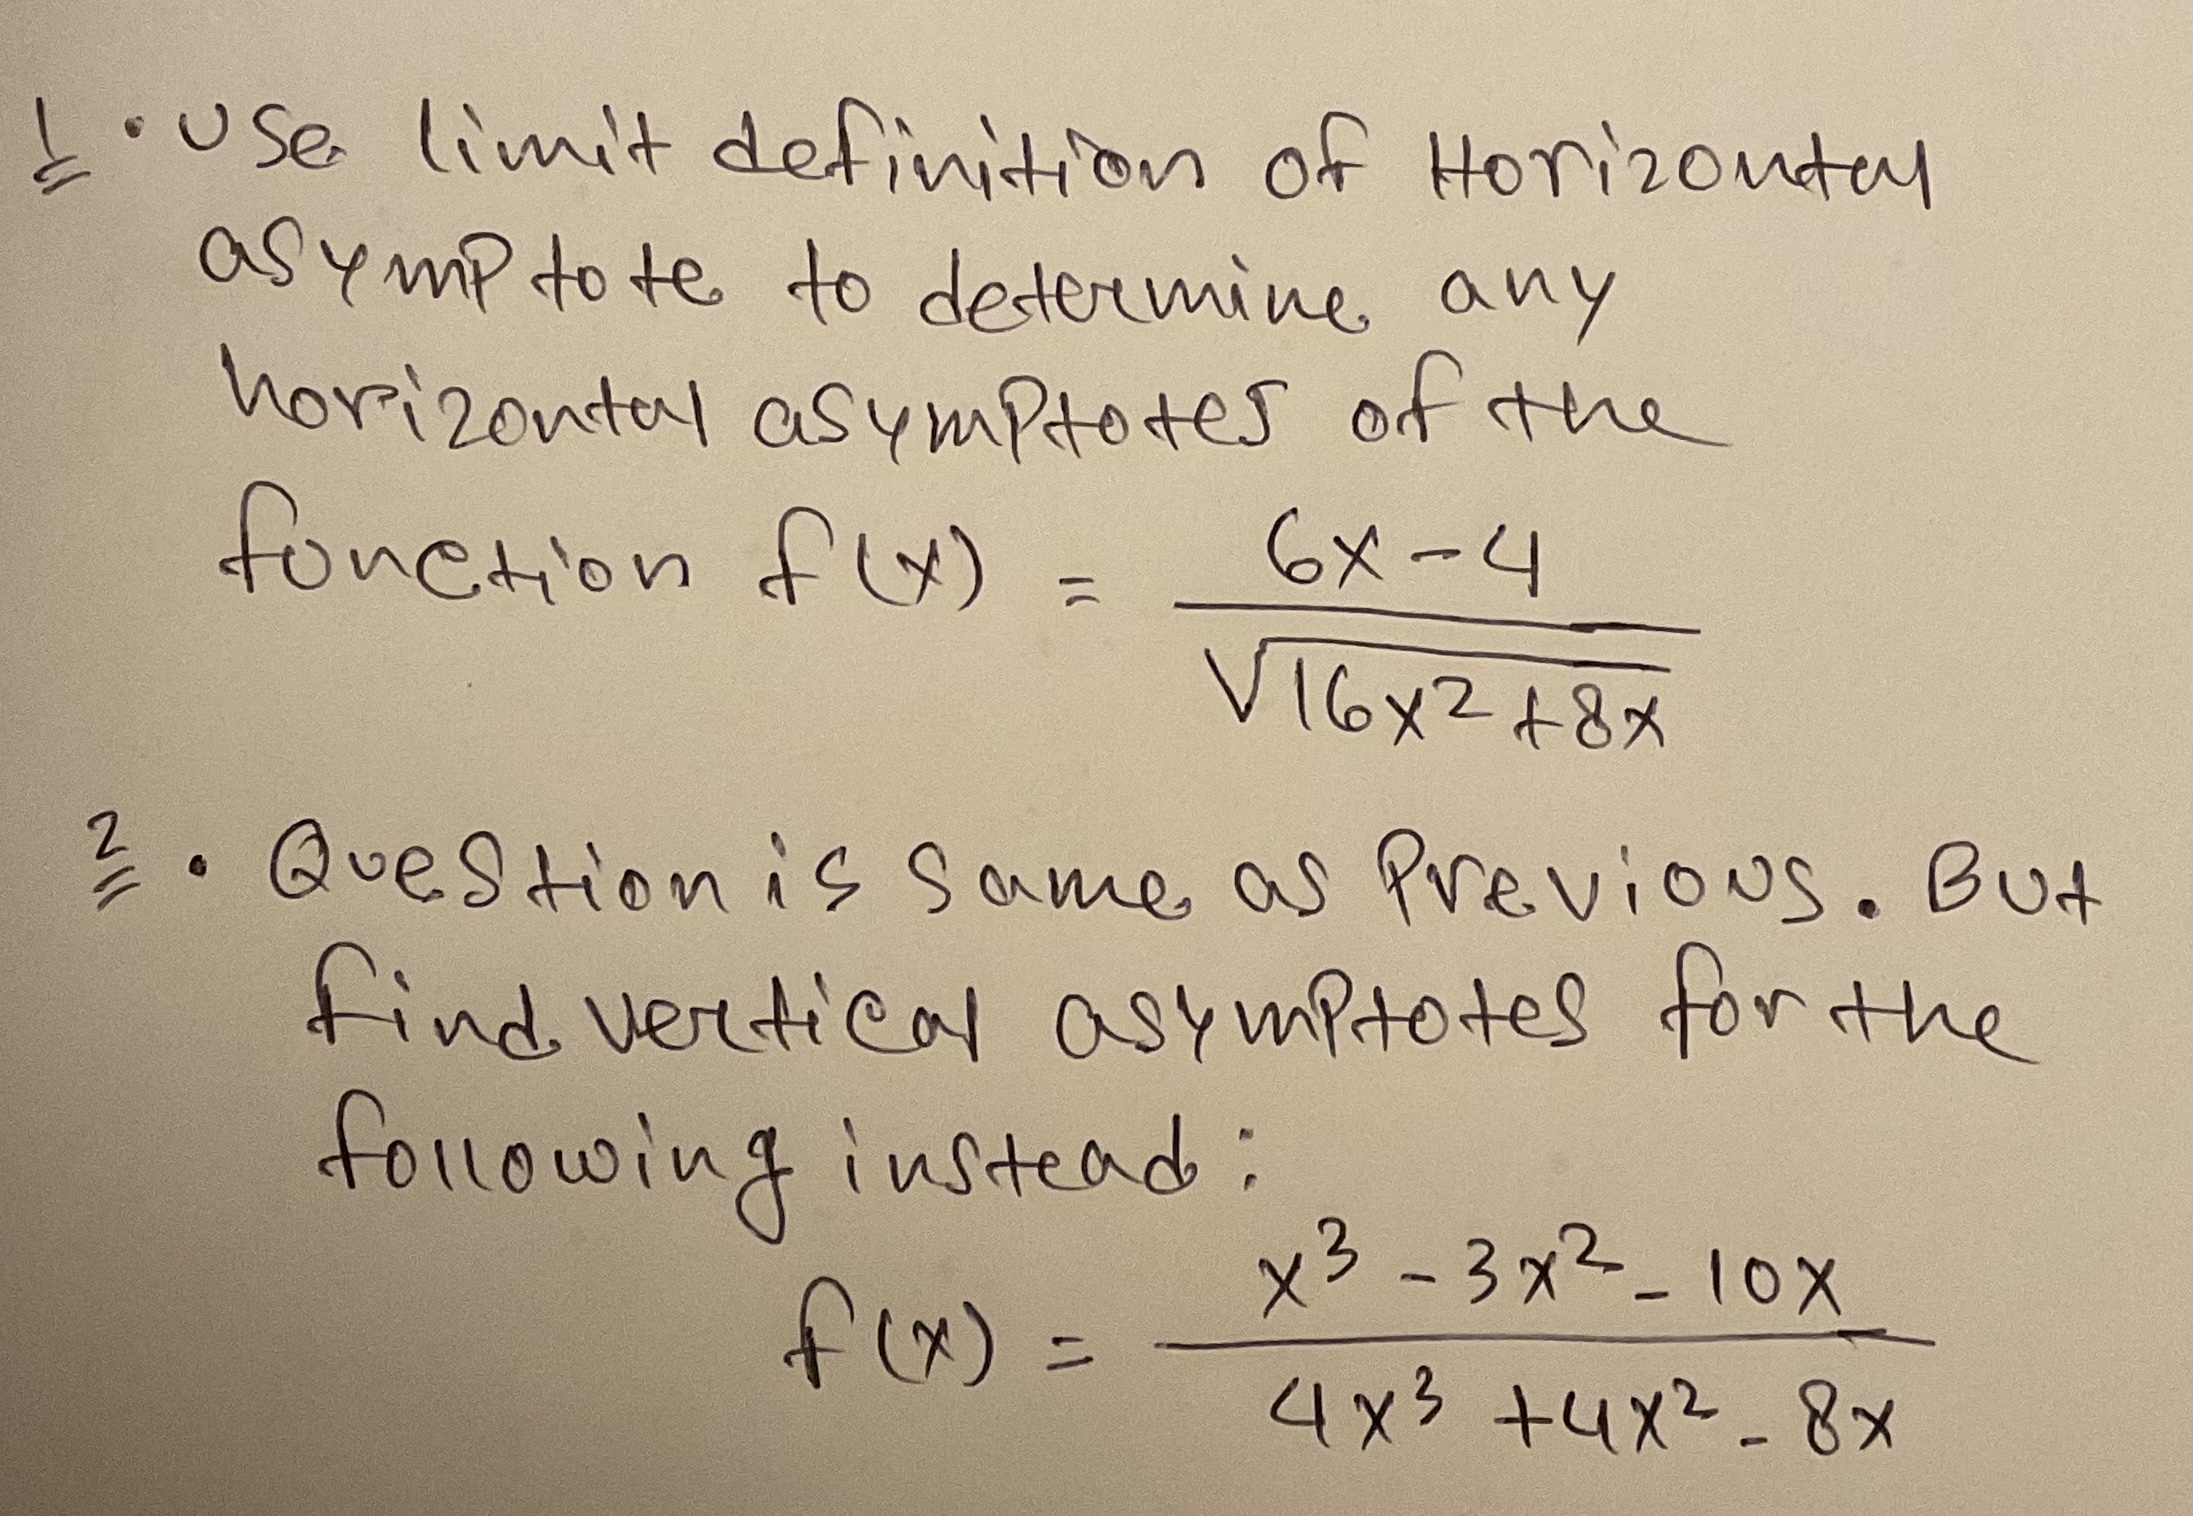 1. Use limit definition of Horizontal
asymptote to determine any
horizontal asymptotes of the
function f(x) = 6x-4 / √16x²+8x
2. Question is same as previous. But
find vertical asymptotes for the
following instead:
f(x) = x³-3x²-10x / 4x³+4x²-8x